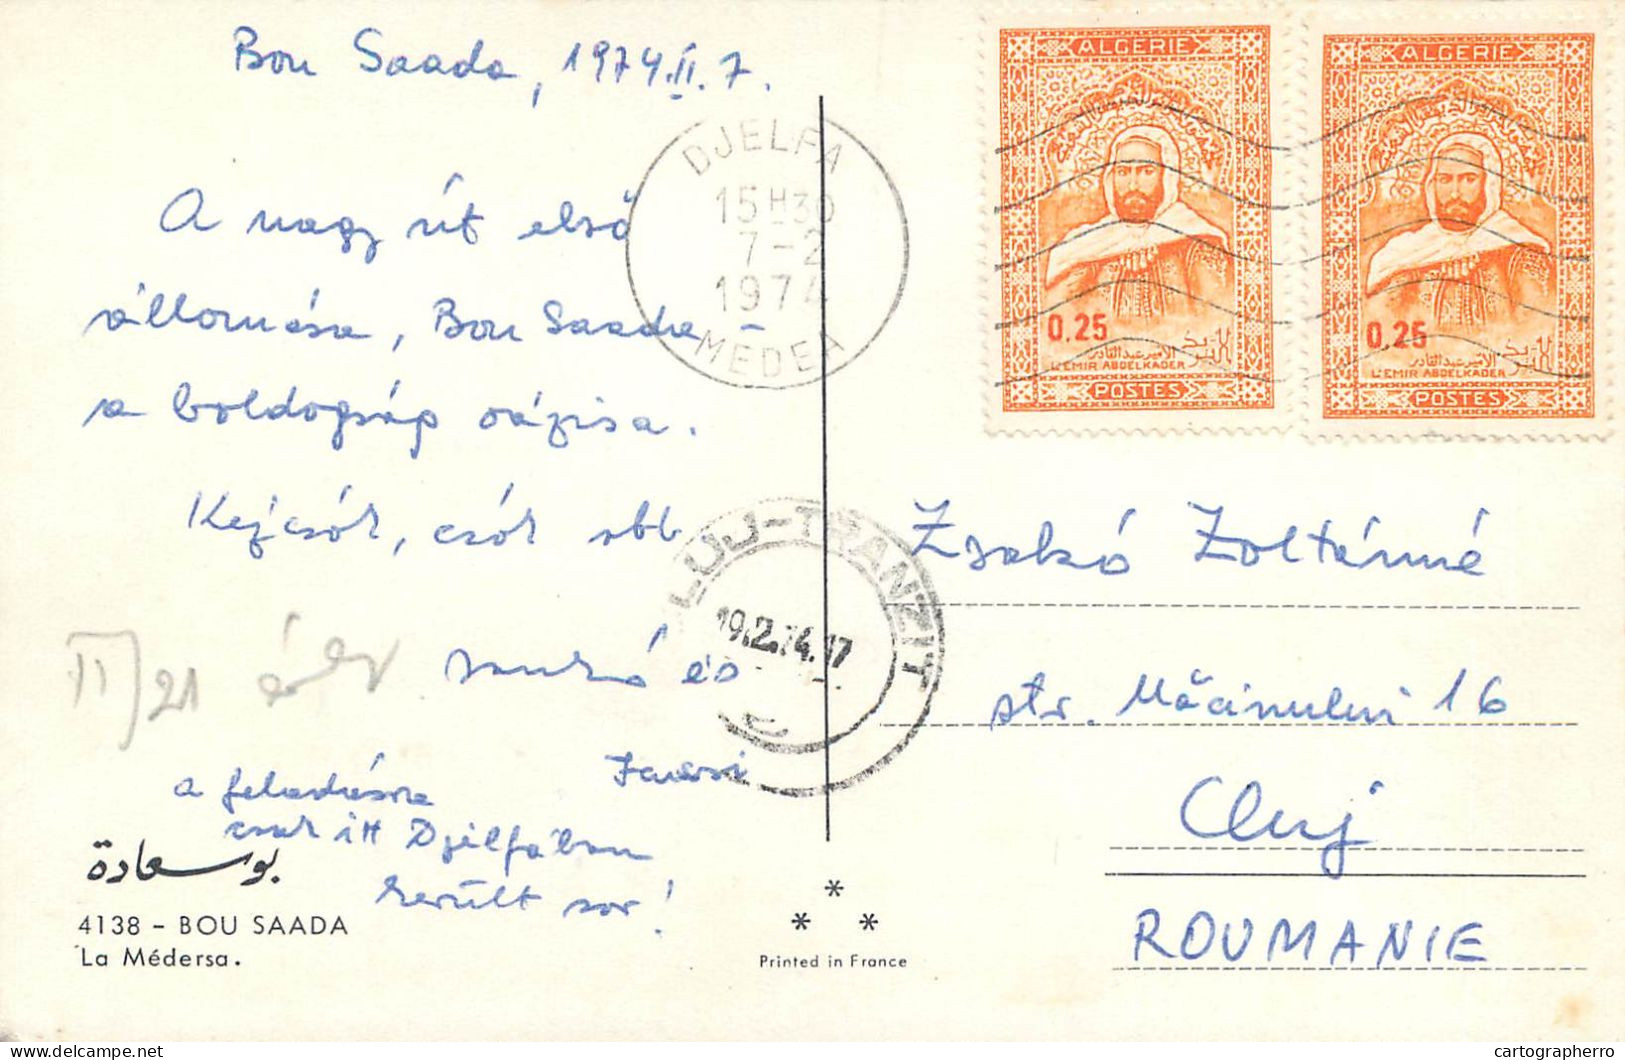 Bou Saada, 1974.II.7.
A nagy út első
állomása, Bou Saada –
a boldogság oázisa.
Kézcsók, csók
és
II/21
a feladásra
csak itt Djelfában
került sor!
بوسعادة
4138 – BOU SAADA
La Médersa.
DJELFA
15H30
7-2
1974
MEDEA
CLUJ-TRANZIT
19.2.74.17
* * *
Printed in France
ALGERIE
0.25
الأمير عبد القادر
البريد
L'EMIR ABDELKADER
POSTES
ALGERIE
0.25
الأمير عبد القادر
البريد
L'EMIR ABDELKADER
POSTES
Zsakó Zoltánné
str. Măcinului 16
Cluj
ROUMANIE
delcampe.net
cartographerro